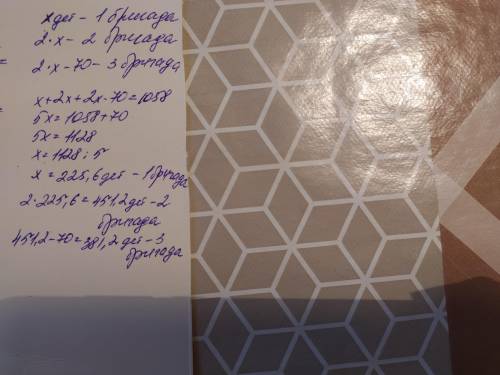 x дет - 1 бригада
2·x - 2 бригада
2·x - 70 - 3 бригада
x+2x+2x-70=1058
5x=1058+70
5x=1128
x=1128:5
x=225,6 дет - 1 бригада
2·225,6=451,2 дет - 2
бригада
451,2-70=381,2 дет - 3
бригада